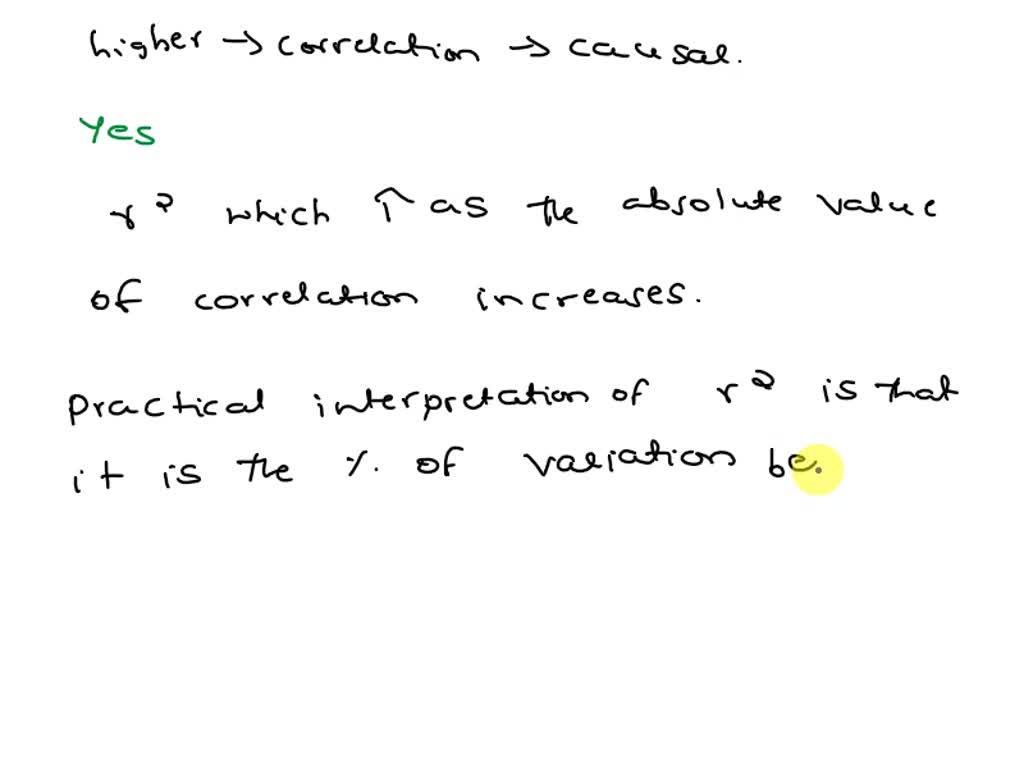 higher → correlation → causal.
Yes
r² which ↑ as the absolute value
of correlation increases.
Practical interpretation of r² is that
it is the %. of variation be.